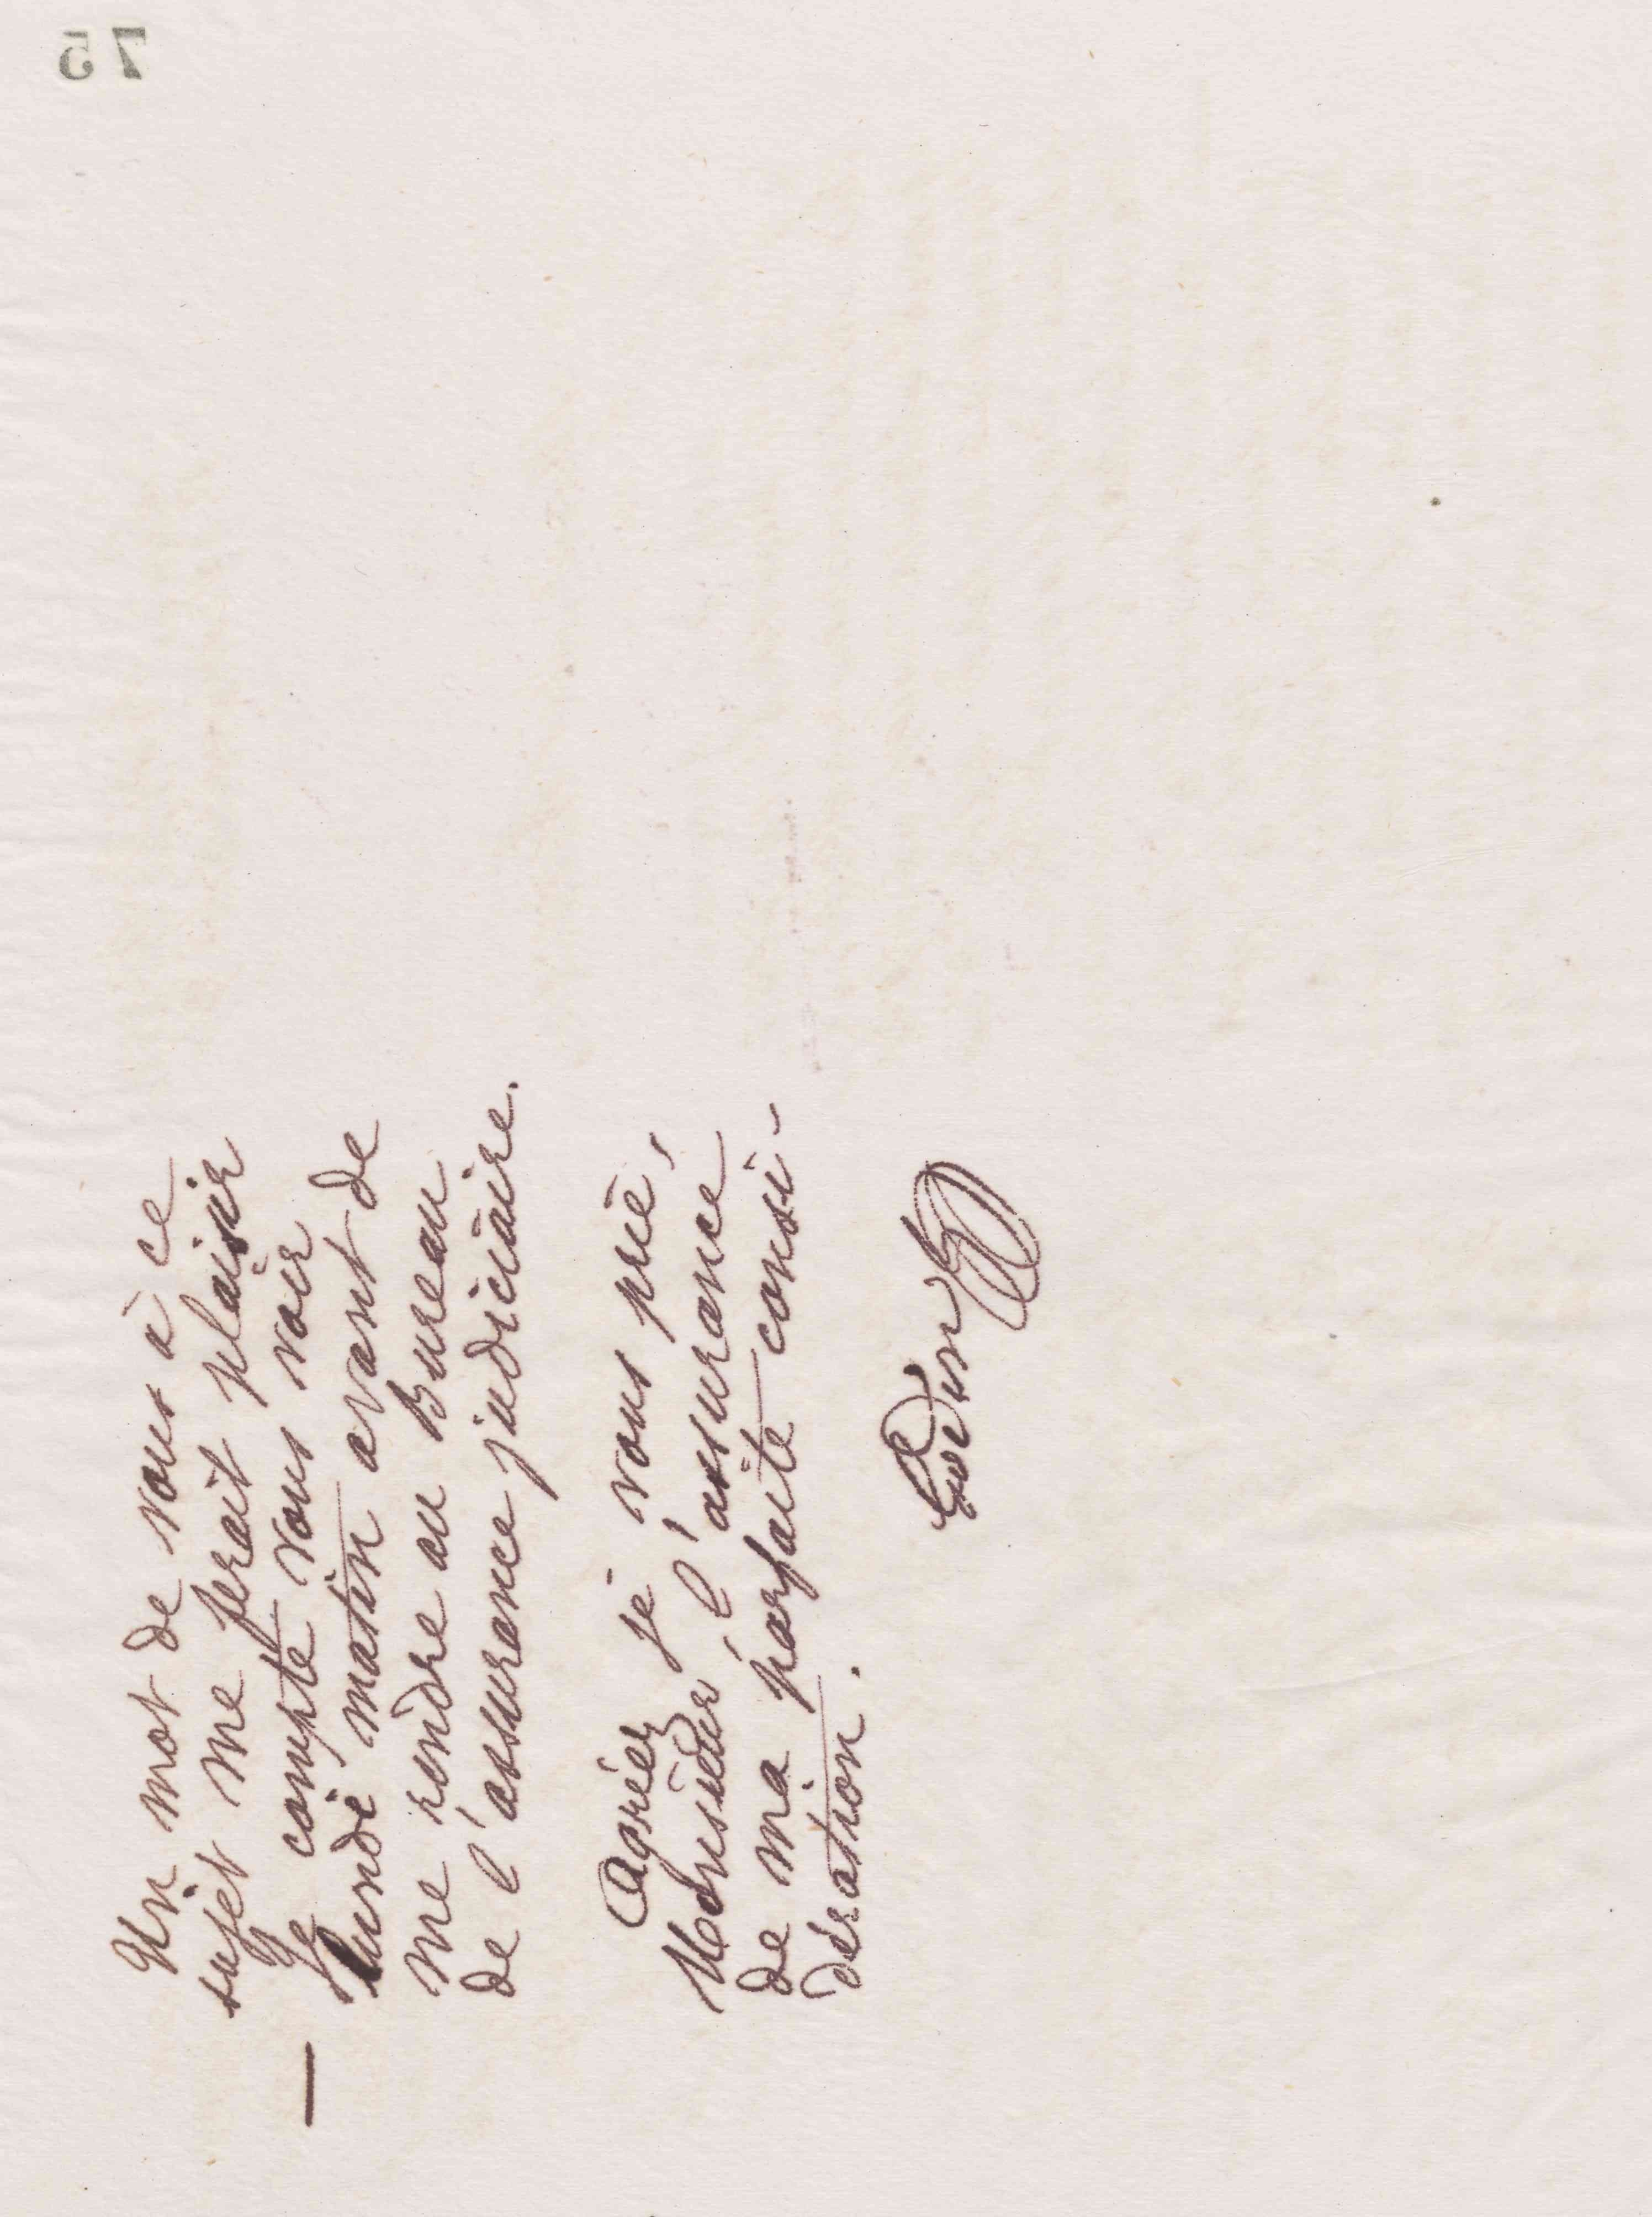 Un mot de vous à ce
sujet me ferait plaisir
— Je compte vous voir
lundi matin avant de
me rendre au Bureau
de l'assurance judiciaire.
Agréez je vous prie,
Monsieur, l'assurance
de ma parfaite consi-
dération.
Godin
75